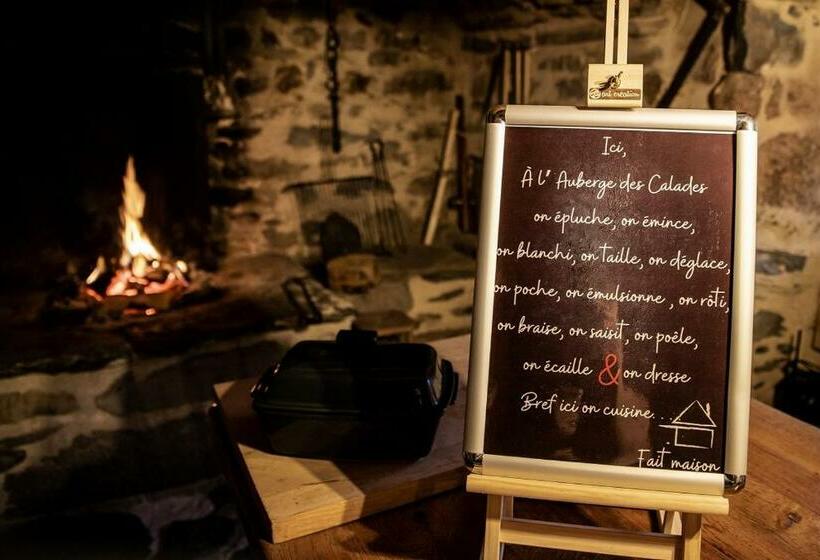 art création
Ici,
À l' Auberge des Calades
on épluche, on émince,
on blanchi, on taille, on déglace,
on poche, on émulsionne , on rôti,
on braise, on saisit, on poêle,
on écaille & on dresse
Bref ici on cuisine...
Fait maison